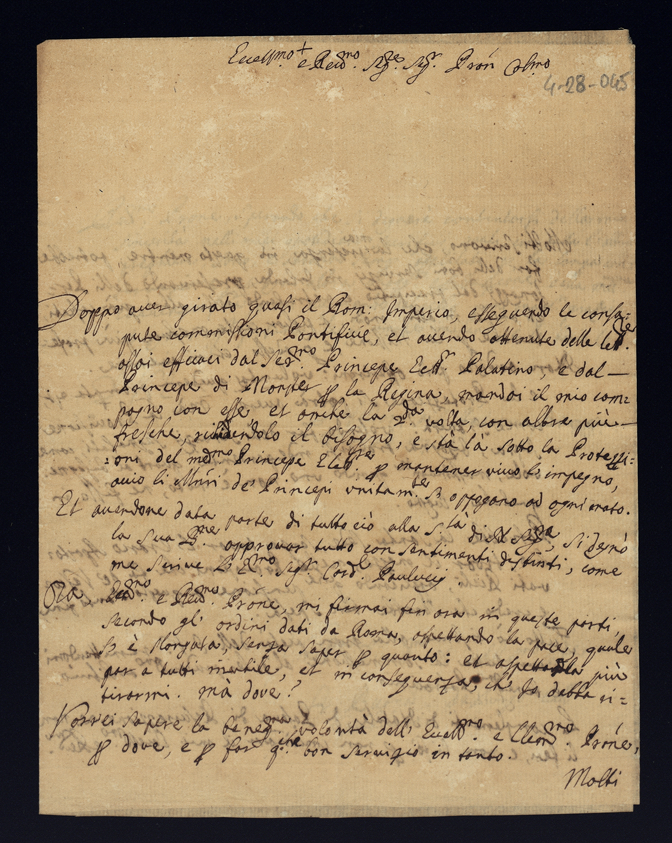 Eccellmo e Revmo Sigre Sigr Pron Colmo
4-28-045
Doppo aver girato quasi il Rom. Imperio, esseguendo le consa-
pute commissioni Pontificie, et avendo ottenute delle letre
assai efficaci dal Sermo Principe Eletr Palatino, e dal
Principe di Monster p la Regina, mandai il mio com-
pagno con esse, et anche la 2da volta, con altre più
fresche, il bisogno, e stà là sotto la Protessi-
oni del medmo Principe Eletre p mantener vivo lo impegno,
acciò li Mnri de Principi unitamte si opponano ad ogni
Et avendone data parte di tutto ciò alla Stà di N Sre, si degnò
la sua approvar tutto con sentimenti distinti, come
me scrive l'Emo Sigr Cardl Paulucij.
Ora Eccmo e Revmo Prone, mi fermai fin ora in queste parti
secondo gl' ordini dati da Roma, aspettando la pace, quale
si è slongata, senza saper p quanto: et aspettarla più
par a tutti inutile, et in conseguenza, ch' Io debba ri-
tirarmi. ma dove?
Vorrei sapere la benigma volontà dell' Eccellmo e Clemmo Prone,
p dove, e p far qche bon servizio in tanto.
Molti